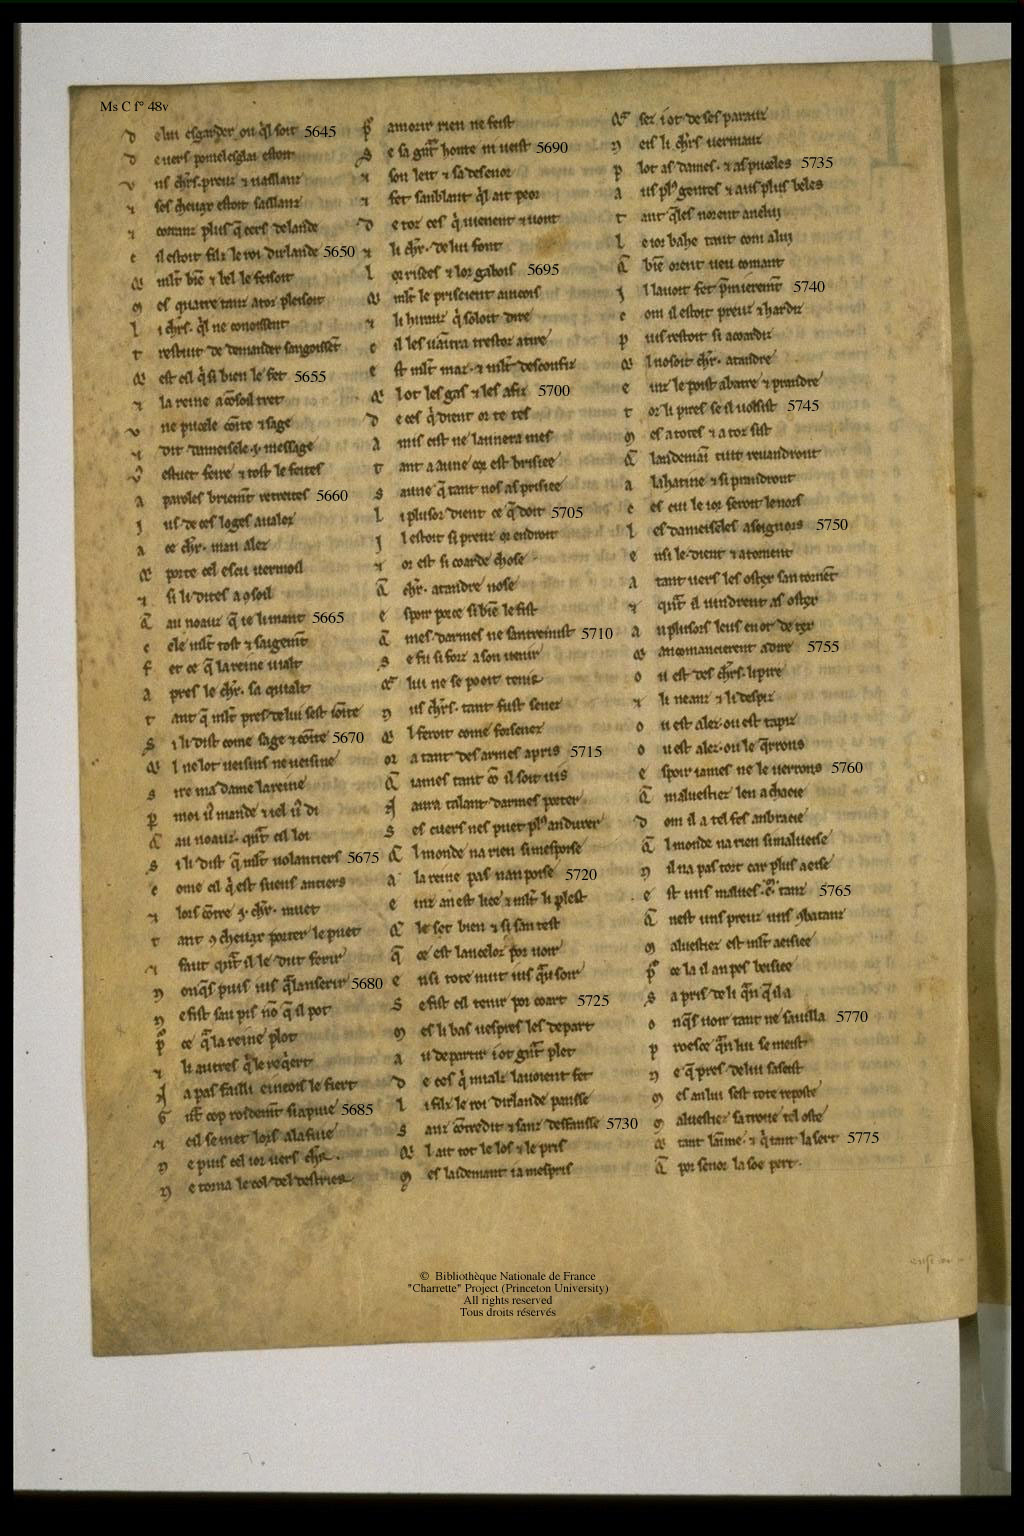 Ms C f° 48v
D e lui esgarder ou q̃l soit 5645
D evers pomelesglai estoit
v us chr̃s. preuz ⁊ vaillanz
⁊ ses chevax estoit saillanz
⁊ corranz plus q̃ cers delande
c il estoit filz le roi dirlande 5650
Q̃ mlt biẽ ⁊ bel le fesoit
M es quatre tanz ator plesoit
l i chr̃s. q̃l ne conoissent
t restuit de demander sangoissẽt
Q̃ est cil q̃ si bien le fet 5655
⁊ la reine a cõsoil tret
v ne pucele cõite ⁊ sage
⁊ dit dameisele .j. message
v estuet feire ⁊ tost le feites
a paroles briemt̃ retreites 5660
J us de ces loges avalez
a ce chr̃. man alez
Q̃ porte cel escu vermoil
⁊ si li dites a ꝯsoil
Q̃ au noauz q̃ ie li mant 5665
c ele mlt tost ⁊ saigemt̃
f et ce q̃ la reine vialt
a pres le chr̃. sa quialt
t ant q̃ mlt pres de lui sest iõite
S i li dist come sage ⁊ cõite 5670
Q̃ l ne lot veisins ne veisine
S ire ma dame la reine
P moi v̾ mande ⁊ iel v̾ di
Q̃ au noauz. qñt cil loi
S i li dist q̃ mlt volantiers 5675
c ome cil q̃ est suens antiers
⁊ lors cõtre .j. chr̃. muet
t ant ꝯ chevax porter le puet
⁊ faut qñt il le dut ferir
N onq̃s puis ius q̃ lanserir 5680
N e fist sau pis nõ q̃ il pot
P̃ ce q̃ la reine plot
⁊ li autres q̃ le req̃ert
N a pas failli eincois le fiert
G rãt cop roidemt̃ si apuie 5685
⁊ cil se met lors a la fuie
N e puis cel ior vers chr̃.
N e torna le col del destrier
P̃ amorir rien ne feist
S e sa grñt honte ni veist 5690
⁊ son leit ⁊ sa desenor
⁊ fet sanblant q̃l ait peor
D e toz ces q̃ vienent ⁊ vont
⁊ li chr̃. de lui font
l or risees ⁊ lor gabois 5695
Q̃ mlt le prisoient aincois
⁊ li hirauz q̃ soloit dire
c il les vaintra trestoz atire
e st mlt maz. ⁊ mlt desconfiz
Q̃ l ot les gas ⁊ les afiz 5700
D e ces q̃ dient or te tes
a mis cist ne launera mes
t ant a aune q̃ or est brisiee
s aune q̃ tant nos as prisiee
l i plusor dient ce q̃ doit 5705
J l estoit si preuz or endroit
⁊ or est si coarde chose
Q̃ chr̃. atandre nose
e spoir porce si biẽ le fist
Q̃ mes darmes ne santremist 5710
S e fu si forz a son venir
Q̃ lui ne se pooit tenir
N us chr̃s. tant fust senez
Q̃ l feroit come forsenez
or a tant des armes apris 5715
Q̃ iames tant cõ il soit vis
N aura talant darmes porter
S es cuers nes puet pl' andurer
Q̃ l monde na rien si mesprise
a la reine pas nan poise 5720
e inz an est liee ⁊ mlt li plest
Q̃ le set bien ⁊ si san test
q̃ ce est lancelor por voir
e nsi tote nuit ius q̃u soir
S e fist cil tenir por coart 5725
M es li bas vespres les depart
a u departir i ot grñt plet
D e ces q̃ mialz lavoient fet
l i filz le roi dirlande pansse
S anz cõtredit ⁊ sanz deffansse 5730
Q̃ l ait tot le los ⁊ le pris
M es laidemant i a mespris
Q̃ sez i ot de ses parauz
N eis li chr̃s vermauz
p lot as dames. ⁊ as puceles 5735
a us pl' gentes ⁊ aus plus beles
t ant q̃les norent anelui
l e ior bahe tant com a lui
Q̃ biẽ orent veu comant
J l lavoit fet p̃mieremt̃ 5740
c om il estoit preuz ⁊ hardiz
p uis restoit si acoardiz
Q̃ l nosoit chr̃. atandre
e inz le poist abatre ⁊ prandre
t or li pires se il volsist 5745
M es a totes ⁊ a toz sist
Q̃ landemaĩ tuit revandront
a lahatine ⁊ si prandront
c es cui le ior seroit lenors
l es dameiseles a seignors 5750
e nsi le dient ⁊ atornent
a tant vers les ostex san tornẽt
⁊ qñt il vindrent as ostex
a n plusors leus en ot de tex
Q̃ ancomancierent a dire 5755
o u est des chr̃s. li pire
⁊ li neanz ⁊ li despiz
o u est alez. ou est tapiz
o u est alez. ou le q̃rrons
e spoir iames ne le verrons 5760
Q̃ malvestiez len a chacie
D om il a tel fes anbracie
Q̃ l monde na rien si malveise
N il na pas tort car plus aeise
e st uns malves .c. tanz 5765
Q̃ nest uns preuz uns ꝯbatanz
M alvestiez est mlt aeisiee
P̃ ce la il an pes beisiee
s a pris de li q̃n q̃ il a
o nq̃s voir tant ne savilla 5770
p roesce q̃n lui se meist
N e q̃ pres de lui saseist
M es an lui sest tote reposte
M alvestiez sa trove tel oste
Q̃ tant lãime. ⁊ q̃ tant la sert 5775
Q̃ por senor la soe pert.
© Bibliothèque Nationale de France
"Charrette" Project (Princeton University)
All rights reserved
Tous droits réservés